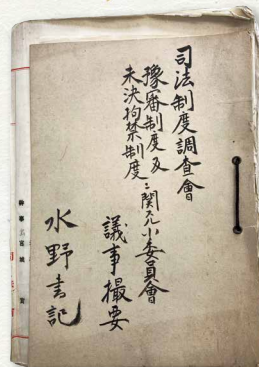 司法制度調查會
豫審制度及
未決拘禁制度ニ関スル小委員會
議事撮要
水野書記